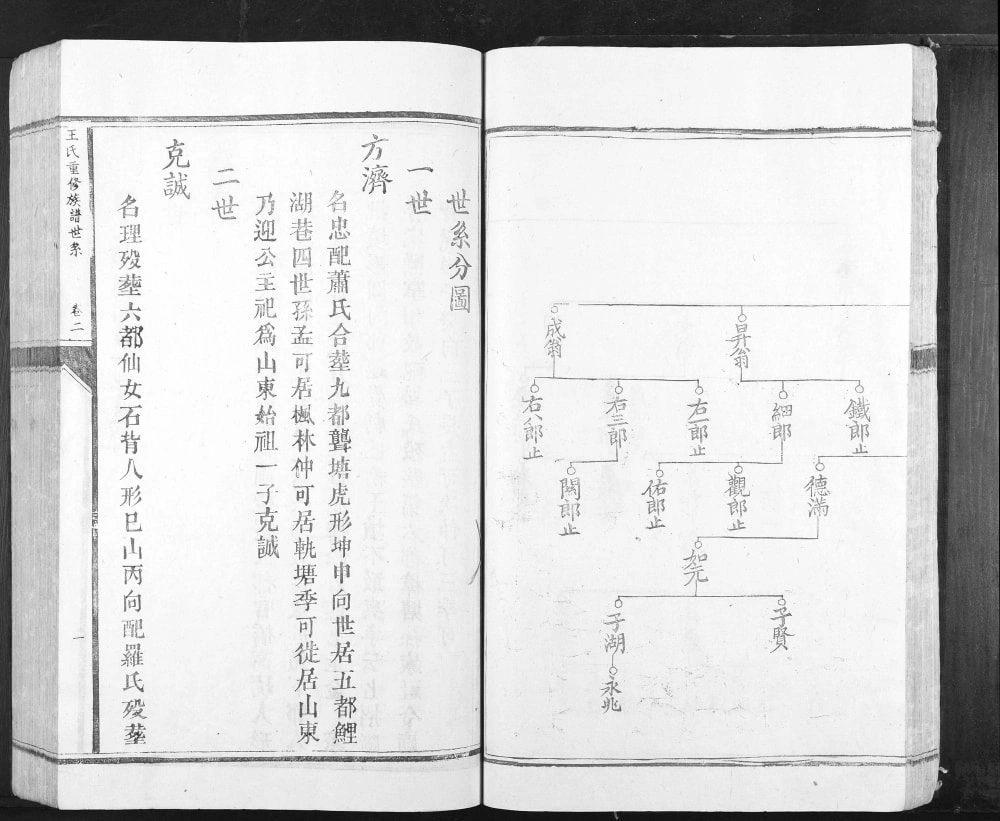 昇翁
成翁
鐵郎止
細郎
右一郎止
右三郎
右八郎止
德滿
觀郎止
佑郎止
閗郎止
如元
子賢
子湖
永兆
世系分圖
一世
方濟
名忠配蕭氏合塟九都龔塘虎形坤申向世居五都鯉
湖巷四世孫孟可居楓林仲可居軌塘季可徙居山東
乃迎公主祀爲山東始祖一子克誠
二世
克誠
名理殁塟六都仙女石背人形巳山丙向配羅氏殁塟
王氏重修族譜世系
卷二
一